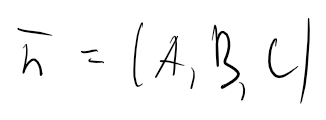 n̅ = (A, B, C)